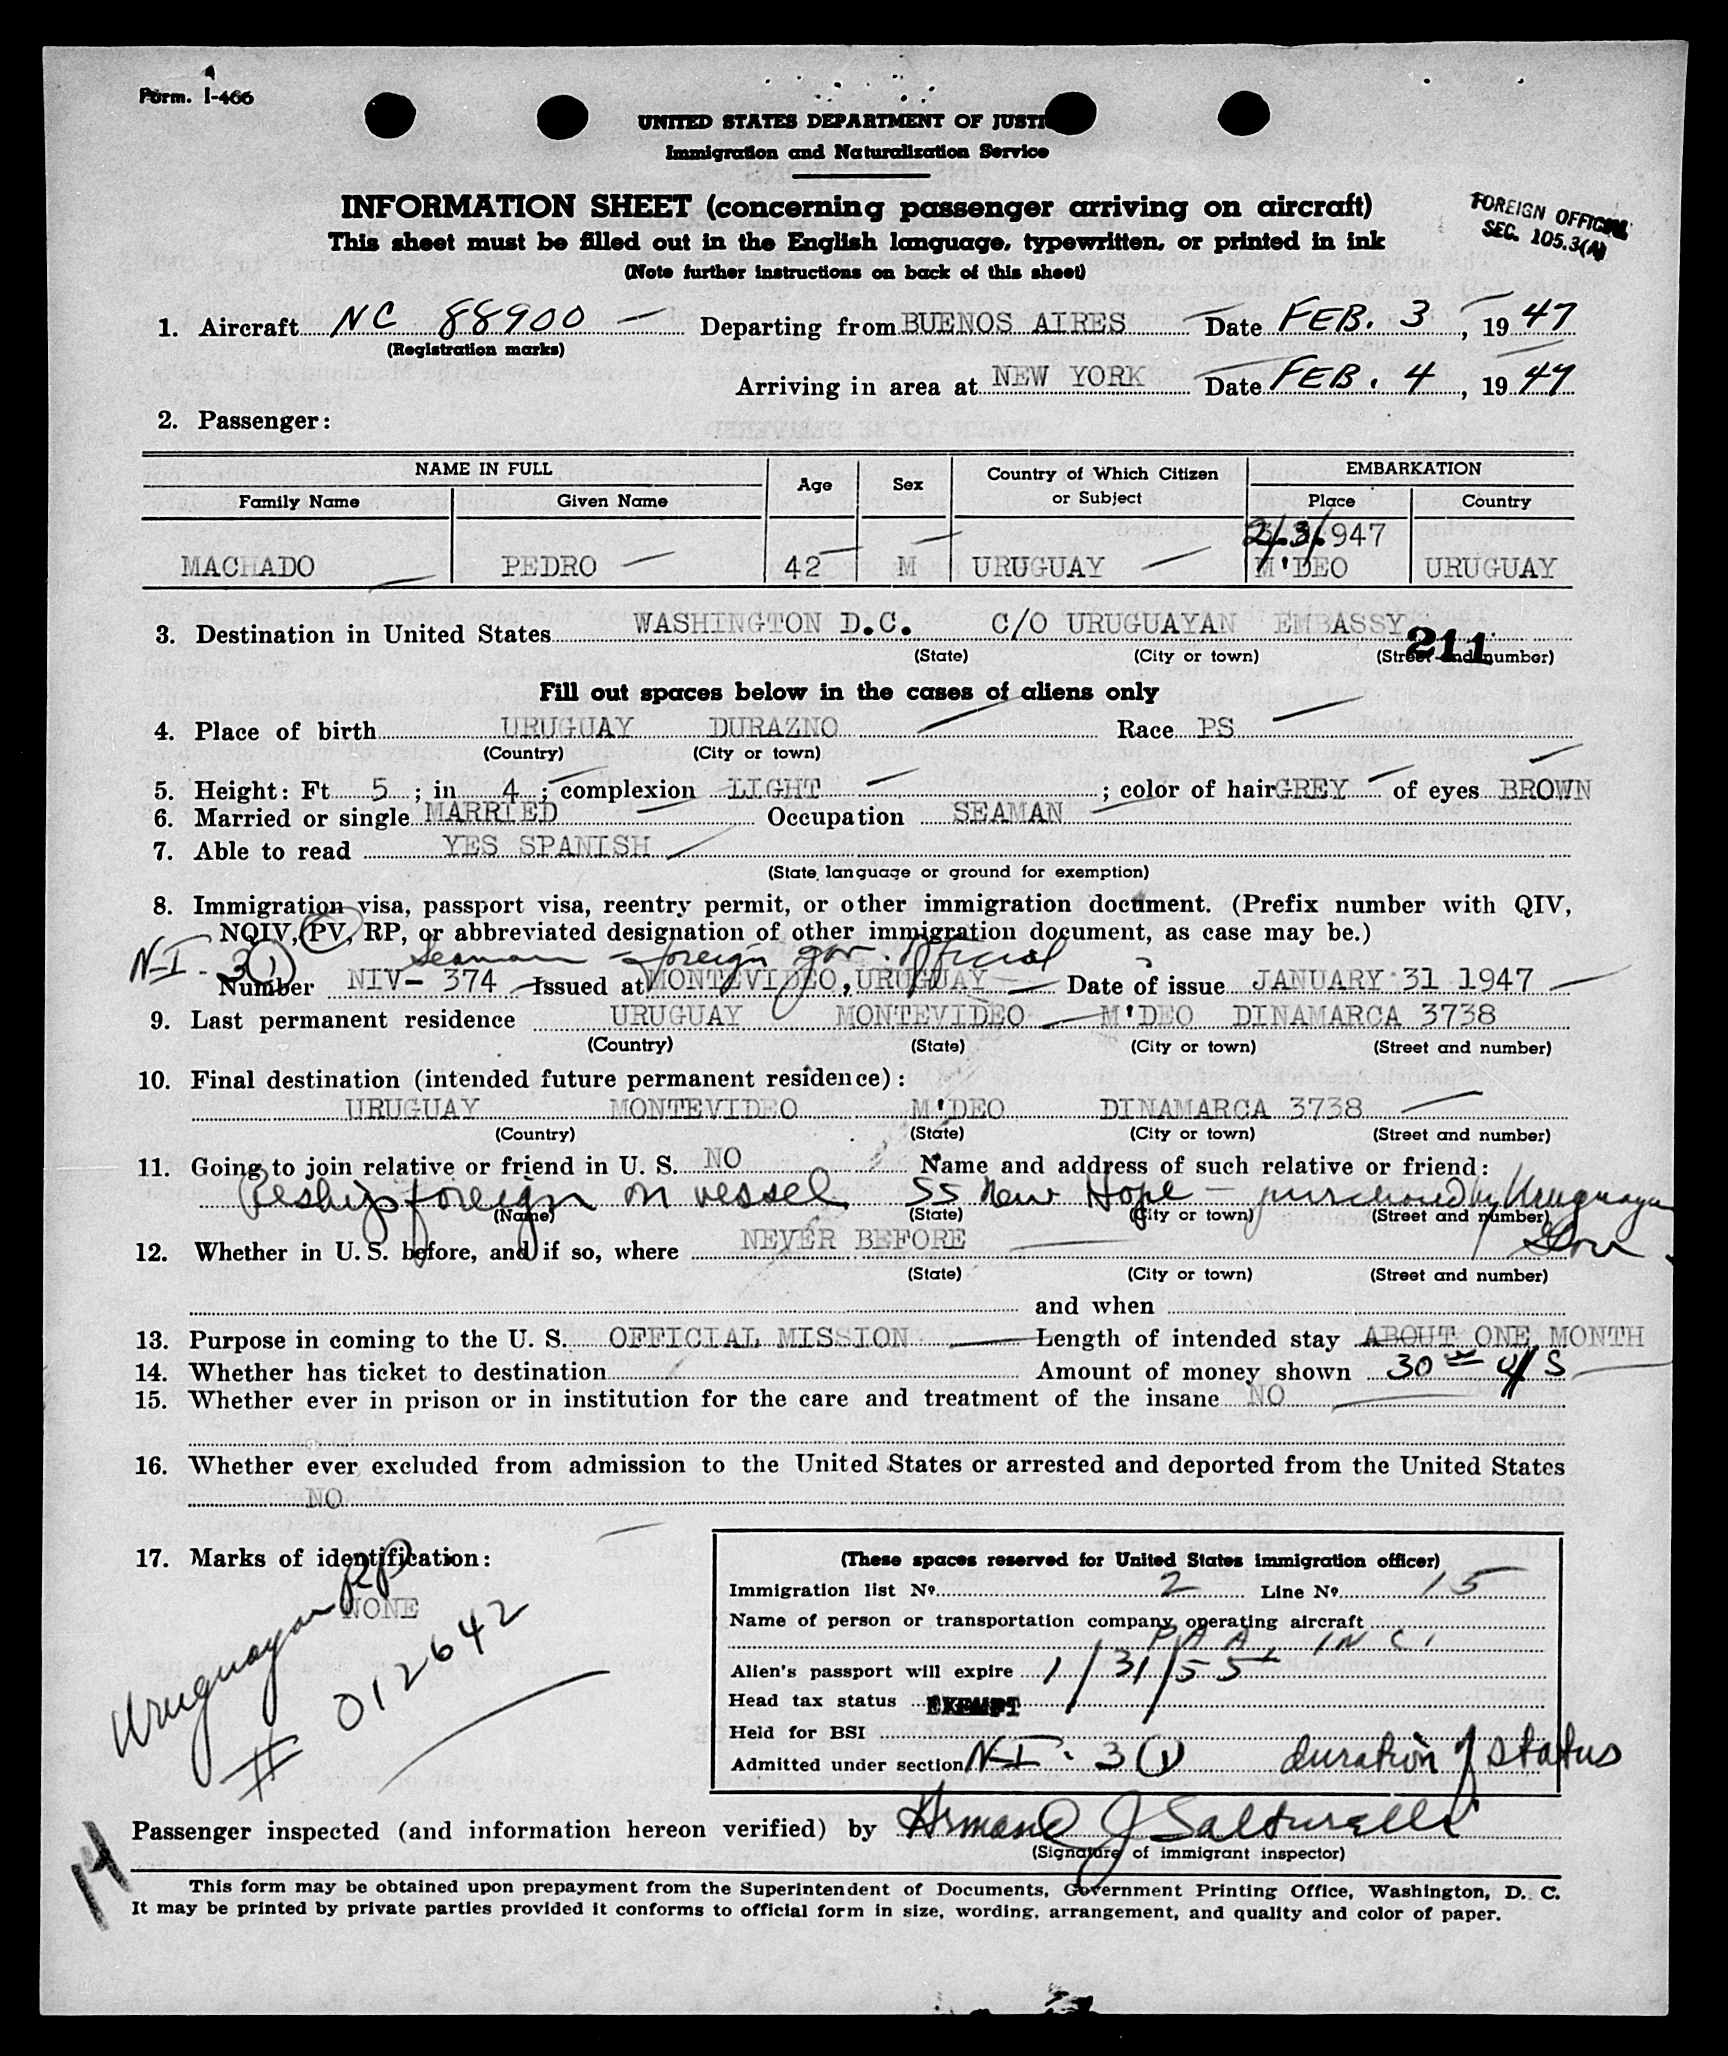 Form. I-466
UNITED STATES DEPARTMENT OF JUSTI
Immigration and Naturalization Service
INFORMATION SHEET (concerning passenger arriving on aircraft)
FOREIGN OFFICERS
SEC. 105.3(A)
This sheet must be filled out in the English language, typewritten, or printed in ink
(Note further instructions on back of this sheet)
1. Aircraft NC 88900 Departing from BUENOS AIRES Date FEB. 3, 1947
(Registration marks)
Arriving in area at NEW YORK Date FEB. 4, 1947
2. Passenger:
NAME IN FULL Age Sex Country of Which Citizen or Subject EMBARKATION
Family Name Given Name Place Country
2/3/947
MACHADO PEDRO 42 M URUGUAY M'DEO URUGUAY
3. Destination in United States WASHINGTON D.C. C/O URUGUAYAN EMBASSY
211
(State) (City or town) (Street and number)
Fill out spaces below in the cases of aliens only
4. Place of birth URUGUAY DURAZNO Race PS
(Country) (City or town)
5. Height: Ft 5; in 4; complexion LIGHT; color of hair GREY of eyes BROWN
6. Married or single MARRIED Occupation SEAMAN
7. Able to read YES SPANISH
(State language or ground for exemption)
8. Immigration visa, passport visa, reentry permit, or other immigration document. (Prefix number with QIV,
NQIV, PV, RP, or abbreviated designation of other immigration document, as case may be.)
N-I - 3(1) Seaman - foreign gov. official
Number NIV- 374 Issued at MONTEVIDEO, URUGUAY Date of issue JANUARY 31 1947
9. Last permanent residence URUGUAY MONTEVIDEO M'DEO DINAMARCA 3738
(Country) (State) (City or town) (Street and number)
10. Final destination (intended future permanent residence):
URUGUAY MONTEVIDEO M'DEO DINAMARCA 3738
(Country) (State) (City or town) (Street and number)
11. Going to join relative or friend in U. S. NO Name and address of such relative or friend:
Reship foreign on vessel SS New Hope - purchased by Uruguayan
Gov.
(Name) (State) (City or town) (Street and number)
12. Whether in U. S. before, and if so, where NEVER BEFORE
(State) (City or town) (Street and number)
and when
13. Purpose in coming to the U. S. OFFICIAL MISSION Length of intended stay ABOUT ONE MONTH
14. Whether has ticket to destination Amount of money shown 30 U/S
15. Whether ever in prison or in institution for the care and treatment of the insane NO
16. Whether ever excluded from admission to the United States or arrested and deported from the United States
NO
17. Marks of identification:
NONE
Uruguayan PP
# 012642
(These spaces reserved for United States immigration officer)
Immigration list No. 2 Line No. 15
Name of person or transportation company operating aircraft
P.A.A. INC.
Alien's passport will expire 1/31/55
Head tax status EXEMPT
Held for BSI
Admitted under section N-I- 3(1) duration of status
14
Passenger inspected (and information hereon verified) by Armand J Salturelli
(Signature of immigrant inspector)
This form may be obtained upon prepayment from the Superintendent of Documents, Government Printing Office, Washington, D. C.
It may be printed by private parties provided it conforms to official form in size, wording, arrangement, and quality and color of paper.